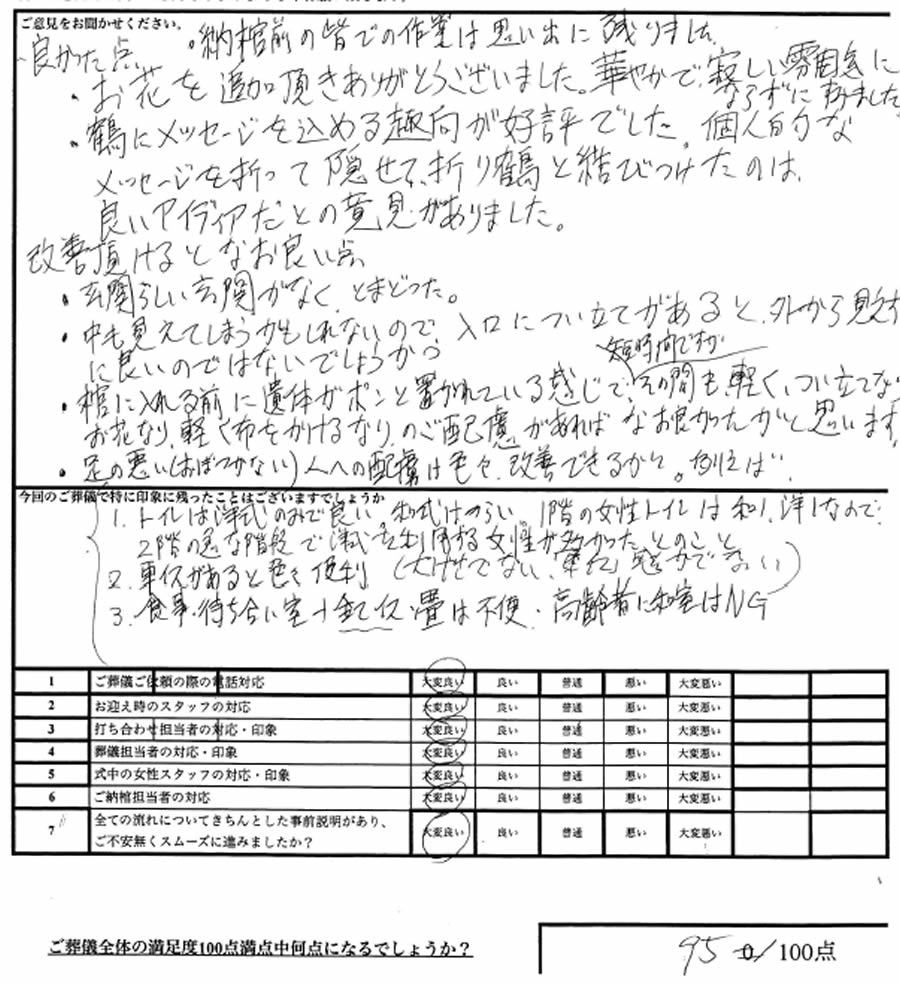 ご意見をお聞かせください。
・納棺前の皆での作業は思い出に残りました
良かった点
・お花を追加頂きありがとうございました。華やかで、寂しい雰囲気に
ならずにすみました
・鶴にメッセージを込める趣向が好評でした。個人的な
メッセージを折って隠せて、折り鶴と結びつけたのは、
良いアイディアだとの意見がありました。
改善頂けるとなお良い点
・玄関らしい玄関がなく、とまどった。
・中も見えてしまうかもしれないので、入口につい立てがあると、外から見えず
に良いのではないでしょうか?
短時間ですが
・棺に入れる前に遺体がポンと置かれている感じで、その間も軽く、つい立てな
お花なり、軽く布をかけるなり、のご配慮があればなお良かったかと思います
・足の悪い(おぼつかない)人への配慮は色々、改善できるかと。例えば
今回のご葬儀で特に印象に残ったことはございますでしょうか
1. トイレは洋式のみで良い。和式はつらい。1階の女性トイレは和1、洋1なので
2階の急な階段で洋式を利用する女性が多かったとのこと
2. 車イスがあると色々便利 (大げさでない、)
3. 食事・待ち合い室→全てイス 畳は不便・高齢者に和室はNG
1 ご葬儀ご依頼の際の電話対応 大変良い 良い 普通 悪い 大変悪い
2 お迎え時のスタッフの対応 大変良い 良い 普通 悪い 大変悪い
3 打ち合わせ担当者の対応・印象 大変良い 良い 普通 悪い 大変悪い
4 葬儀担当者の対応・印象 大変良い 良い 普通 悪い 大変悪い
5 式中の女性スタッフの対応・印象 大変良い 良い 普通 悪い 大変悪い
6 ご納棺担当者の対応 大変良い 良い 普通 悪い 大変悪い
7 全ての流れについてきちんとした事前説明があり、
ご不安無くスムーズに進みましたか? 大変良い 良い 普通 悪い 大変悪い
ご葬儀全体の満足度100点満点中何点になるでしょうか? 95 /100点